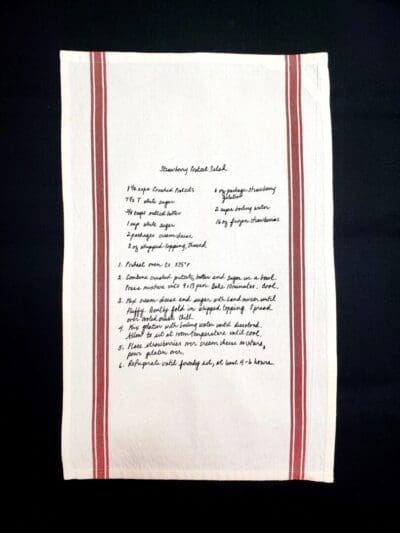 Strawberry Pretzel Salad
cups Crushed Pretzels
T white sugar
cups melted butter
1 cup white sugar
2 packages cream cheese
8 oz whipped topping, thawed
6 oz package strawberry
gelatin
2 cups boiling water
16 oz frozen strawberries
1. Preheat oven to °F
2. Combine crushed pretzels, butter and sugar in a bowl.
Press mixture into 9x13 pan. Bake 10 minutes. Cool.
3. Mix cream cheese and sugar with hand mixer until
fluffy. Gently fold in whipped topping. Spread
over cooled crust. Chill.
4. Mix gelatin with boiling water until dissolved.
Allow to sit at room temperature until cool.
5. Place strawberries over cream cheese mixture,
pour gelatin over.
6. Refrigerate until firmly set, at least 4-6 hours.